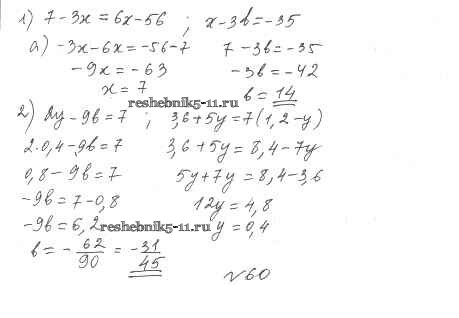 1) 7-3x=6x-56 ; x-3b=-35
a) -3x-6x=-56-7 7-3b=-35
-9x=-63 -3b=-42
x=7 b=14
reshebnik5-11.ru
2) 2y-9b=7 ; 3,6+5y=7(1,2-y)
2·0,4-9b=7 3,6+5y=8,4-7y
0,8-9b=7 5y+7y=8,4-3,6
-9b=7-0,8 12y=4,8
-9b=6,2 y=0,4
reshebnik5-11.ru
b=-62/90=-31/45
№60